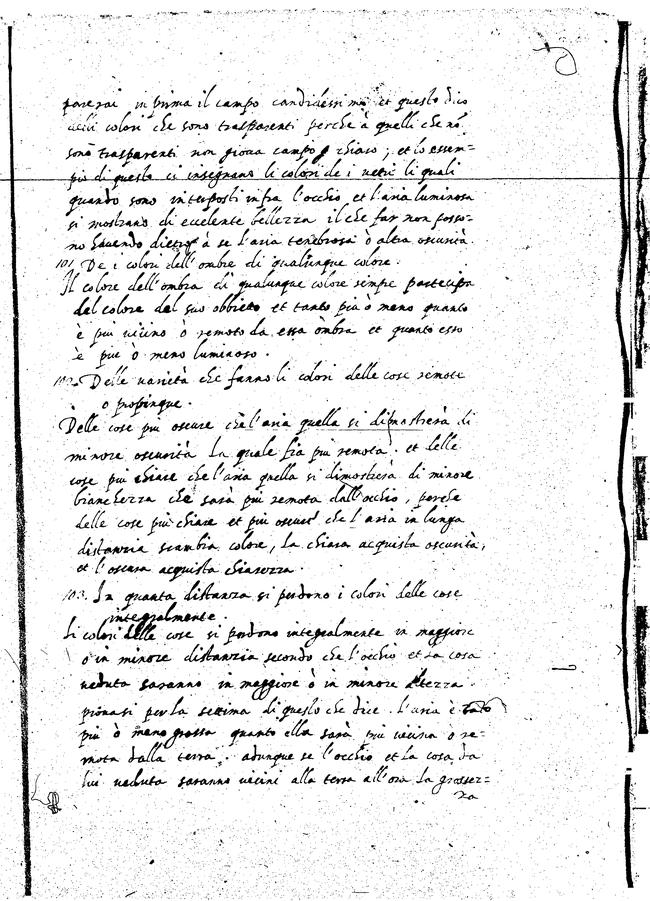 parerai in prima il campo candidissimo et questo dico
delli colori che sono trasparenti perche à quelli che nō
sono trasparenti non gioua campo chiaro ; et lo essem=
pio di questo ci insegnano li colori de i uetri li quali
quando sono interposti infra l'occhio et l'aria luminosa
si mostrano di eccelente bellezza il che far non posso=
no hauendo dietro à se l'aria tenebrosa ò altra oscurità.
101. De i colori dell'ombre di qualunque colore.
Il colore dell'ombra di qualunque colore sempre partecipa
del colore del suo obbietto et tanto più ò meno quanto
è più uicino ò remoto da essa ombra et quanto esso
è più ò meno luminoso.
102. Delle uarietà che fanno li colori delle cose remote
o propinque.
Delle cose più oscure che l'aria quella si dimostrerà di
minore oscurità la quale fia più remota. et delle
cose più chiare che l'aria quella si dimostrerà di minore
bianchezza che sarà più remota dall'occhio, perche
delle cose più chiare et più oscure che l'aria in lunga
distanzia scambia colore, la chiara acquista oscurità,
et l'oscura acquista chiarezza.
103. In quanta distanza si perdono i colori delle cose
integralmente.
Li colori delle cose si perdono integralmente in maggiore
ò in minore distanzia secondo che l'occhio et la cosa
ueduta saranno in maggiore ò in minore altezza.
prouasi per la settima di questo che dice. l'aria è tāto
più ò meno grossa quanto ella sarà più uicina o re=
mota dalla terra. adunque se l'occhio et la cosa da
lui ueduta saranno uicini alla terra all'ora la grossez=
za